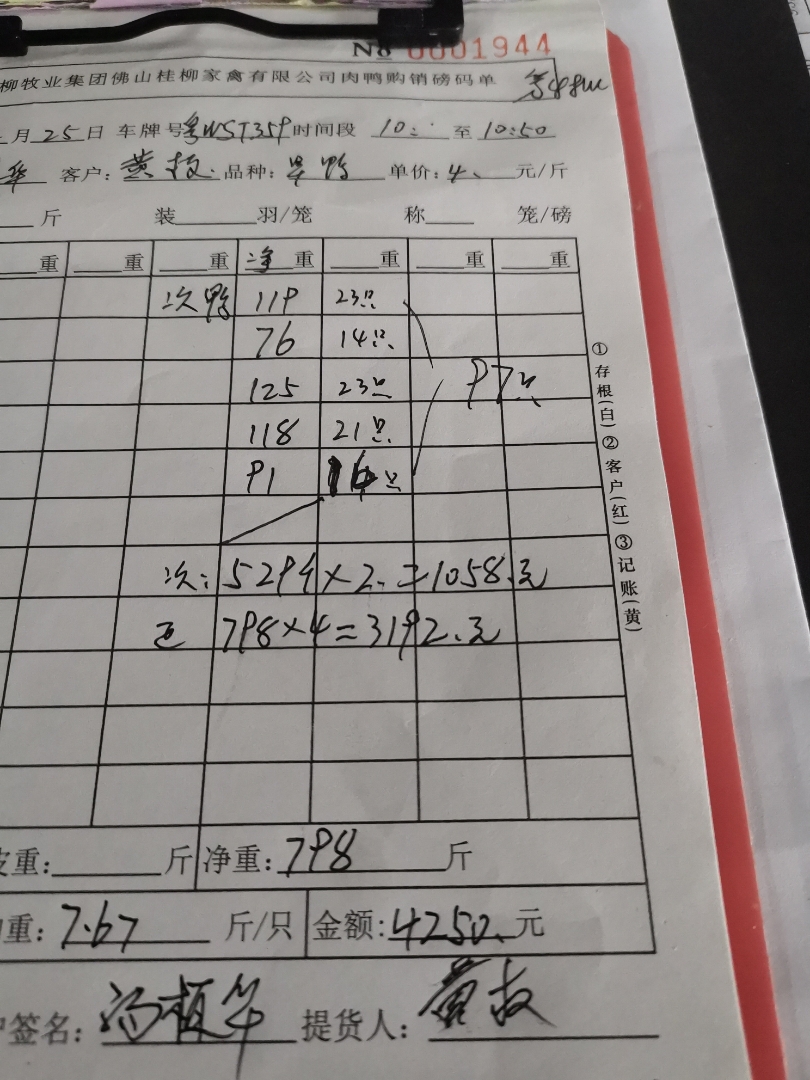 No 0001944
柳牧业集团佛山桂柳家禽有限公司肉鸭购销磅码单
月25日 车牌号粤WST359时间段 10: 至 10:50
华 客户: 黄 品种: 鸭 单价: 4. 元/斤
斤 装 羽/笼 称 笼/磅
重 重 重 净重 重 重 重
次鸭 119 23只
76 14只
125 23只 97只
118 21只
91 16只
次: 529斤×2.=1058.元
正 798×4=3192.元
①存根(白)②客户(红)③记账(黄)
皮重: 斤 净重: 798 斤
重: 7.67 斤/只 金额: 4250. 元
户签名: 冯植华 提货人: 黄